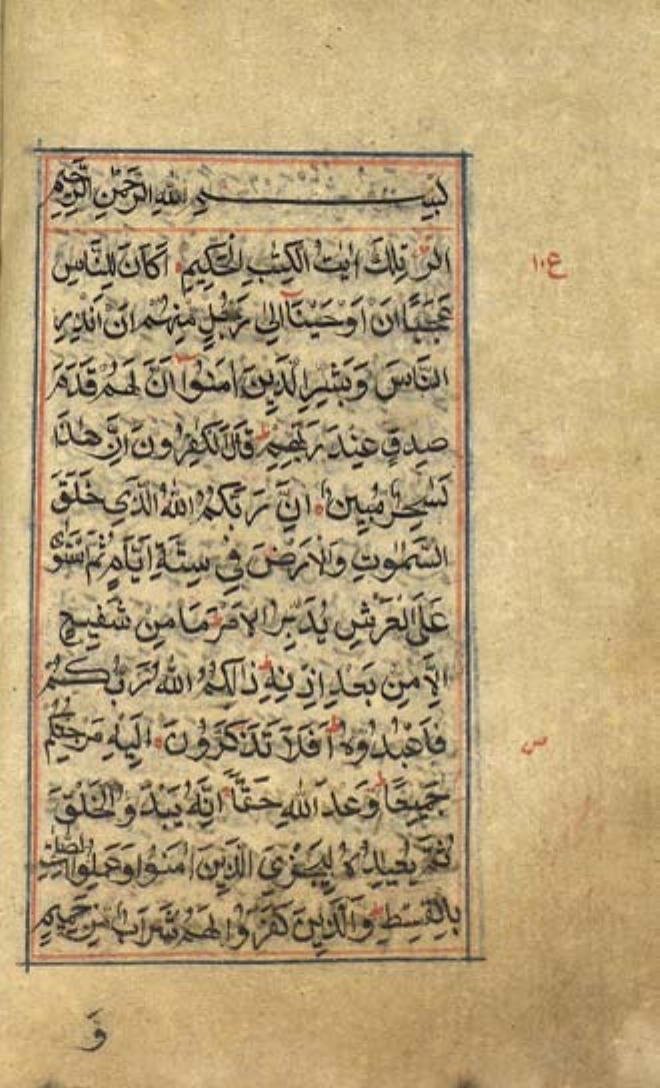 بسم الله الرحمن الرحيم
الر تلك ايت الكتب الحكيم اكان للناس
ع ١٠
عجبا ان اوحينا الى رجل منهم ان انذر
الناس وبشر الذين امنوا ان لهم قدم
صدق عند ربهم قال الكفرون ان هذا
لسحر مبين ان ربكم الله الذي خلق
السموت والارض في ستة ايام ثم استوى
على العرش يدبر الامر ما من شفيع
الا من بعد اذنه ذلكم الله ربكم
فاعبدوه افلا تذكرون اليه مرجعكم
جميعا وعد الله حقا انه يبدؤ الخلق
ثم يعيده ليجزي الذين امنوا وعملوا الصلحت
بالقسط والذين كفروا لهم شراب من حميم
وَ